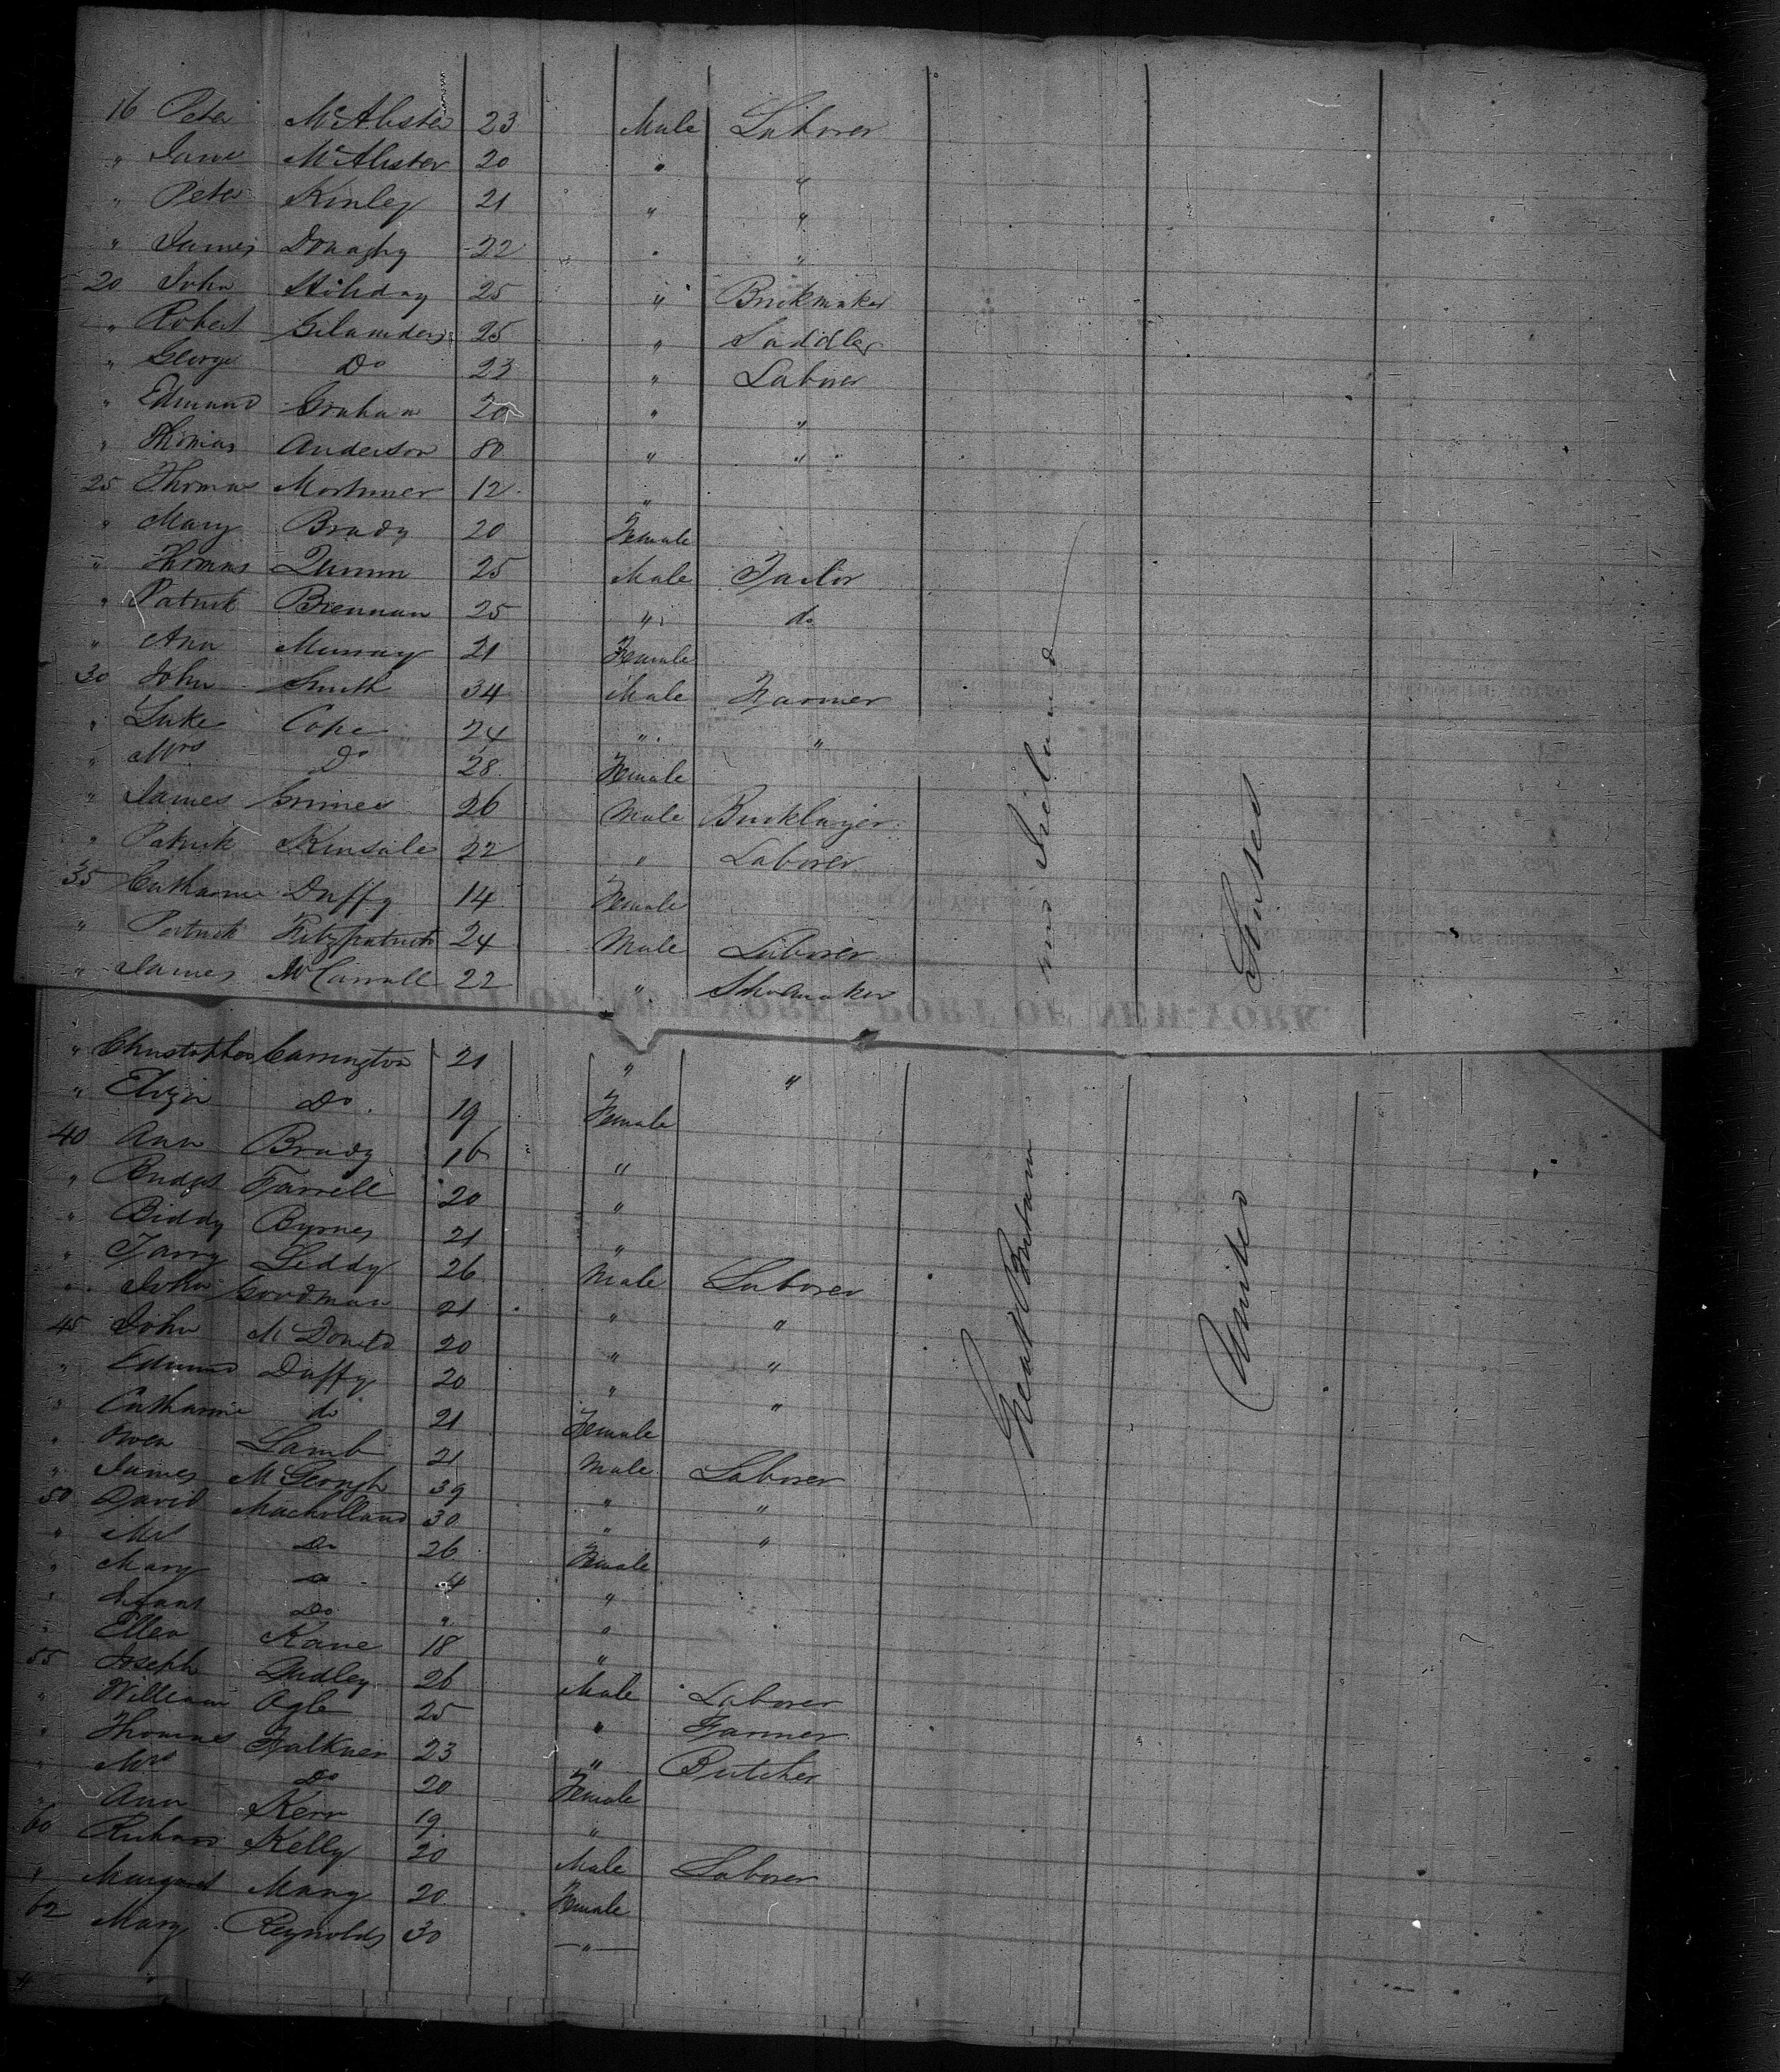 16 Peter McAlister 23 Male Laborer
" Jane McAlister 20 " "
" Peter Kinley 21 " "
" James Donaghy 22 " "
20 John 25 " Brickmaker
" Robert Gilanders 25 " Saddler
" George Do 23 " Laborer
" Edmund Graham 20 " "
" Thomas Anderson 80 " "
25 Thomas Mortimer 12 "
" Mary Brady 20 Female
" Thomas Quinn 25 Male Tailor
" Patrick Brennan 25 " do
" Ann Murray 21 Female
30 John Smith 34 Male Farmer
" Luke Cope 24 " "
" Mrs Do 28 Female
" James Grimes 26 Male Bricklayer
" Patrick Kinsale 22 " Laborer
35 Catharine Duffy 14 Female
" Patrick Fitzpatrick 24 Male Laborer
" James McCarroll 22 " Shoemaker
" Christopher Carrington 21 " "
" Eliza Do 19 Female
40 Ann Brady 16 "
" Bridget Farrell 20 "
" Biddy Byrnes 21 "
" Tarry Leddy 26 Male Laborer
" John Goodman 21 " "
45 John McDonald 20 " "
" Edmund Duffy 20 " "
" Catharine do 21 Female
" Owen Lamb 21 Male Laborer
" James McGeough 39 " "
50 David Macholland 30 " "
" Mrs Do 26 Female
" Mary Do 4 "
" Infant Do " "
" Ellen Kane 18 "
55 Joseph Dudley 26 Male Laborer
" William Ogle 25 " Farmer
" Thomas Falkner 23 " Butcher
" Mrs Do 20 Female
" Ann Kerr 19 "
60 Richard Kelly 20 Male Laborer
" Margaret Mang 20 Female
62 Mary Reynolds 30 "
Great Britain and Ireland
United States